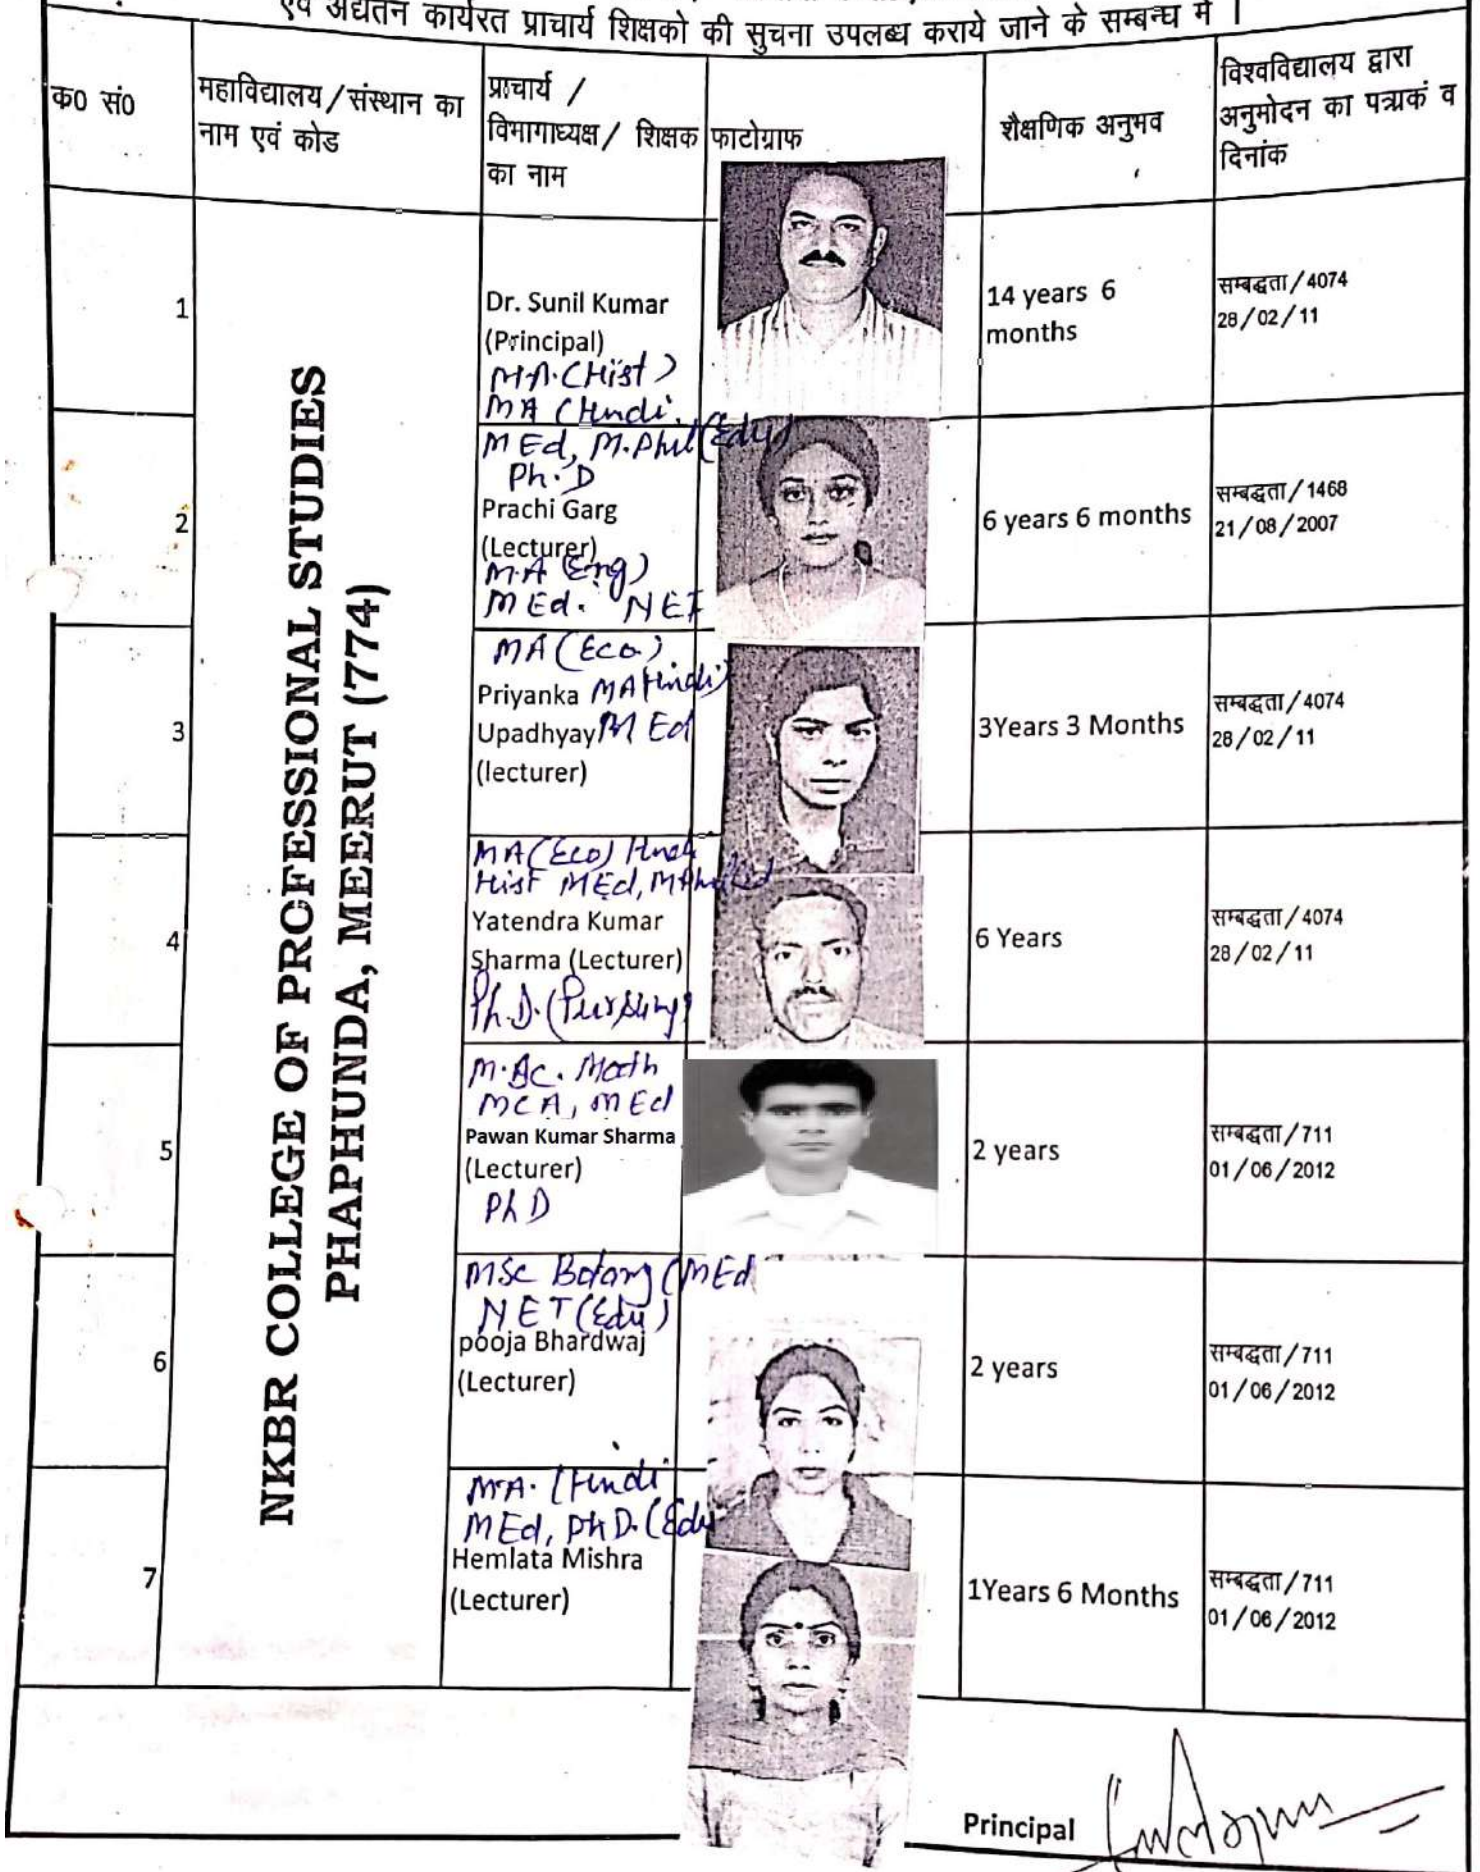 एवं अद्यतन कार्यरत प्राचार्य शिक्षको की सुचना उपलब्ध कराये जाने के सम्बन्ध में ।
क0 सं0
महाविद्यालय/संस्थान का
नाम एवं कोड
प्राचार्य /
विभागाध्यक्ष/ शिक्षक
का नाम
फाटोग्राफ
शैक्षणिक अनुभव
विश्वविद्यालय द्वारा
अनुमोदन का पत्राकं व
दिनांक
NKBR COLLEGE OF PROFESSIONAL STUDIES
PHAPHUNDA, MEERUT (774)
1
Dr. Sunil Kumar
(Principal)
M.A. (Hist)
MA (Hindi
M Ed, M.Phil (Edu)
Ph.D
14 years 6
months
सम्बद्धता/4074
28/02/11
2
Prachi Garg
(Lecturer)
M.A (Eng)
M Ed. NET
6 years 6 months
सम्बद्धता/1468
21/08/2007
3
MA (Eco)
Priyanka MA Hindi)
Upadhyay M Ed
(lecturer)
3Years 3 Months
सम्बद्धता/4074
28/02/11
4
MA (Eco) Hindi
Hist MEd,
Yatendra Kumar
Sharma (Lecturer)
Ph.D. (Pursuing)
6 Years
सम्बद्धता/4074
28/02/11
5
M.Sc. Math
MCA, M Ed
Pawan Kumar Sharma
(Lecturer)
Ph D
2 years
सम्बद्धता/711
01/06/2012
6
MSc Botany (MEd
NET (Edu)
pooja Bhardwaj
(Lecturer)
2 years
सम्बद्धता/711
01/06/2012
7
M.A. (Hindi
M Ed, PhD. (Edu
Hemlata Mishra
(Lecturer)
1Years 6 Months
सम्बद्धता/711
01/06/2012
Principal